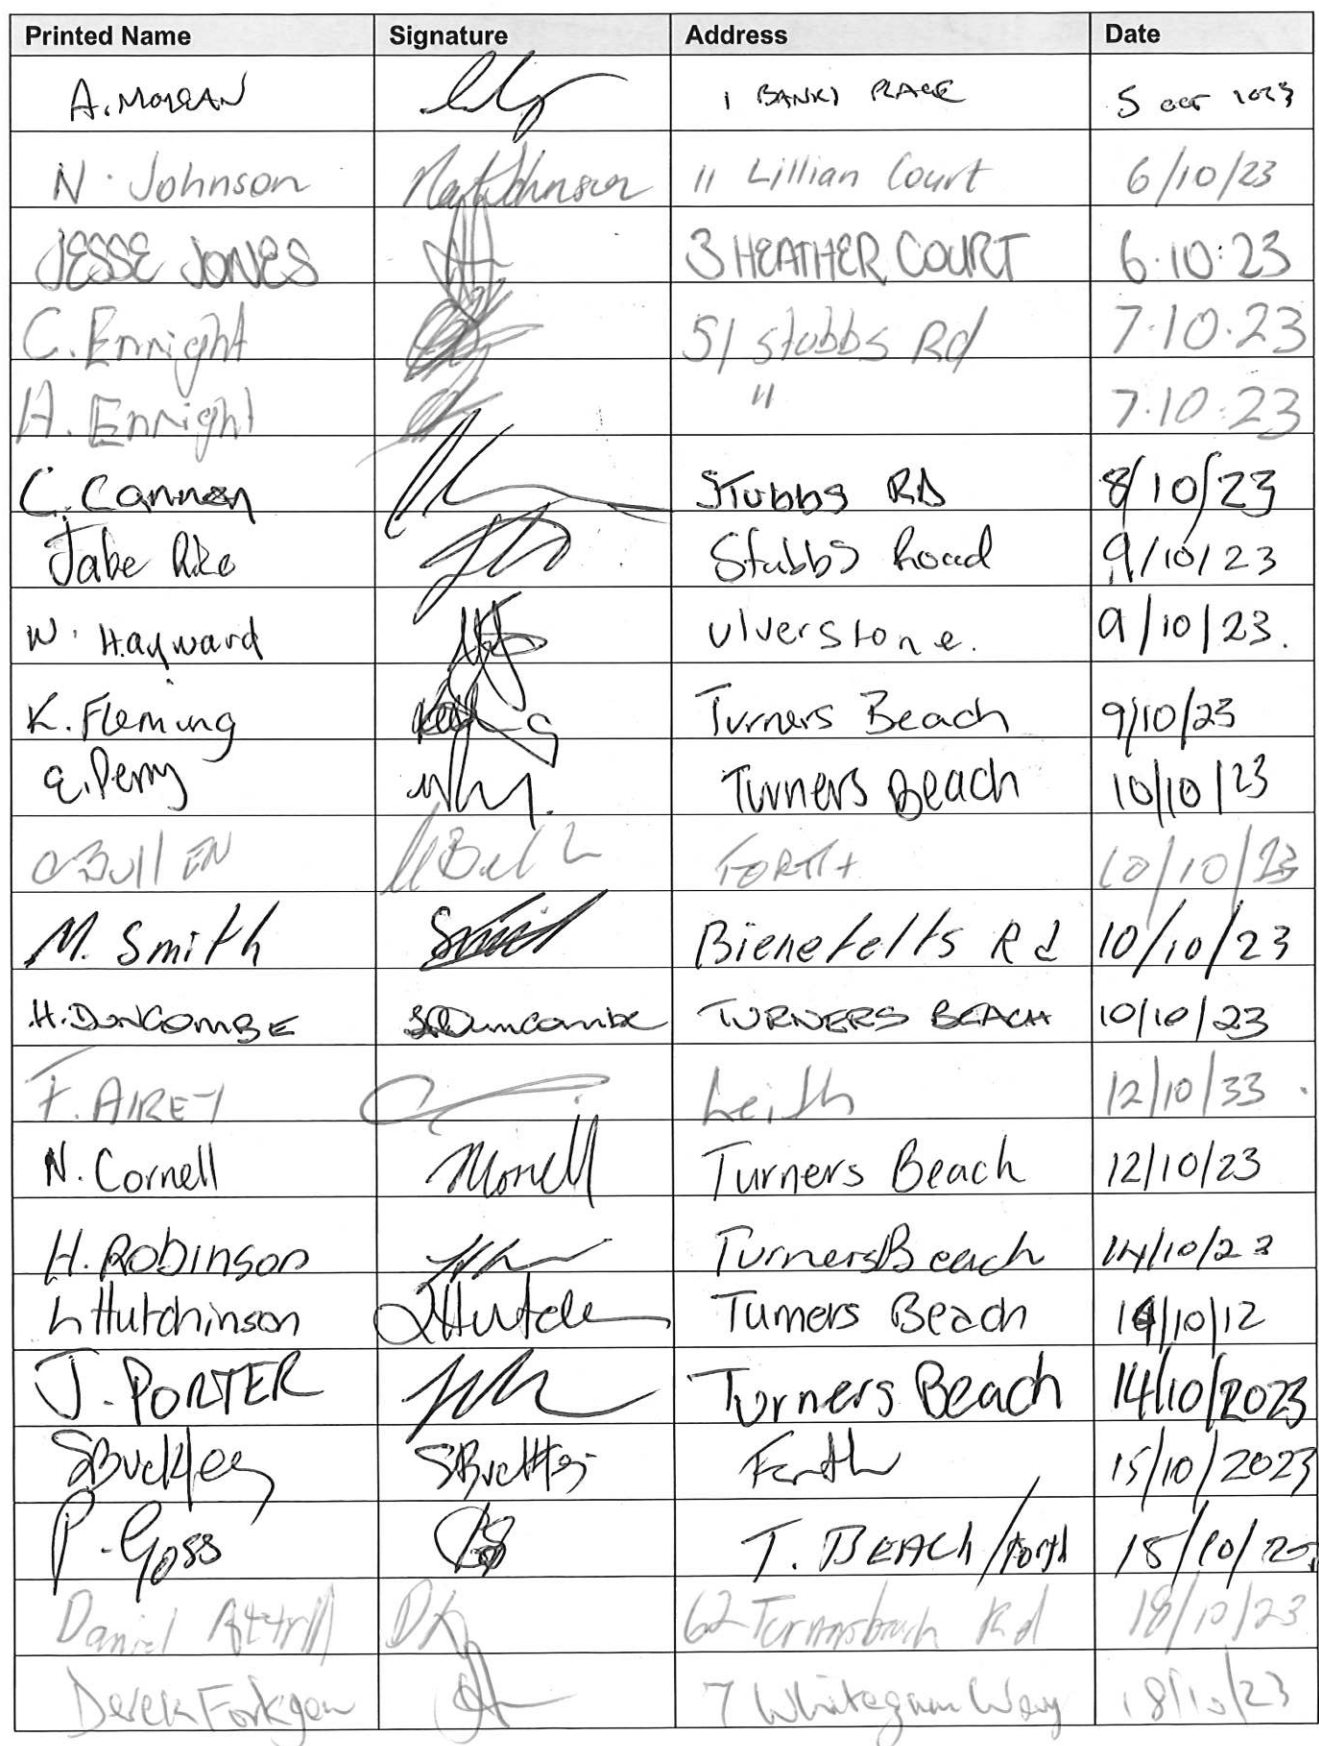 Printed Name Signature Address Date
A. MORGAN 1 BANKS PLACE 5 OCT 2023
N. Johnson Nat Johnson 11 Lillian Court 6/10/23
JESSE JONES 3 HEATHER COURT 6.10:23
C. Enright 51 Stubbs Rd 7.10.23
A. Enright " 7.10.23
C. Cannon Stubbs RD 8/10/23
Jabe Stubbs Road 9/10/23
W. Hayward Ulverstone. 9/10/23.
K. Fleming Turners Beach 9/10/23
E. Perry Turners Beach 10/10/23
C BullEN FORTH 10/10/23
M. Smith Smith Bienefelts Rd 10/10/23
H. DUNCOMBE HDuncombe TURNERS BEACH 10/10/23
F. AIREY Leith 12/10/33
N. Cornell NCornell Turners Beach 12/10/23
H. Robinson Turners Beach 14/10/23
L Hutchinson LHutch Turners Beach 14/10/12
J. PORTER Turners Beach 14/10/2023
S Buckley SBuckley Forth 15/10/2023
P. Goss T. BEACH/Forth 15/10/23
Daniel Attrill DA 62 Turnersbeach Rd 18/10/23
Derek 7 Whitegum Way 18/10/23